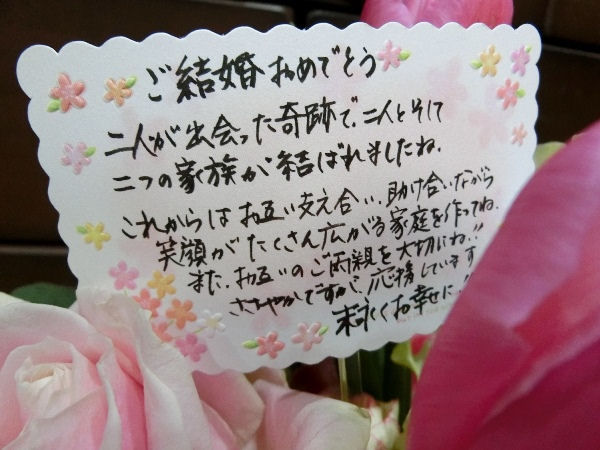 ご結婚おめでとう
二人が出会った奇跡で、二人とそして
二つの家族が結ばれましたね。
これからはお互い支え合い、助け合いながら
笑顔がたくさん広がる家庭を作ってね。
また、お互いのご両親を大切にね!!
ささやかですが、応援しています
末永くお幸せに!!